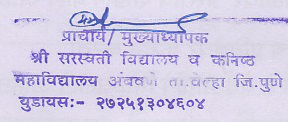 प्राचार्य/मुख्याध्यापक
श्री सरस्वती विद्यालय व कनिष्ठ
महाविद्यालय अंबवणे ता.वेल्हा जि.पुणे
युडायस:- २७२५१३०४६०४